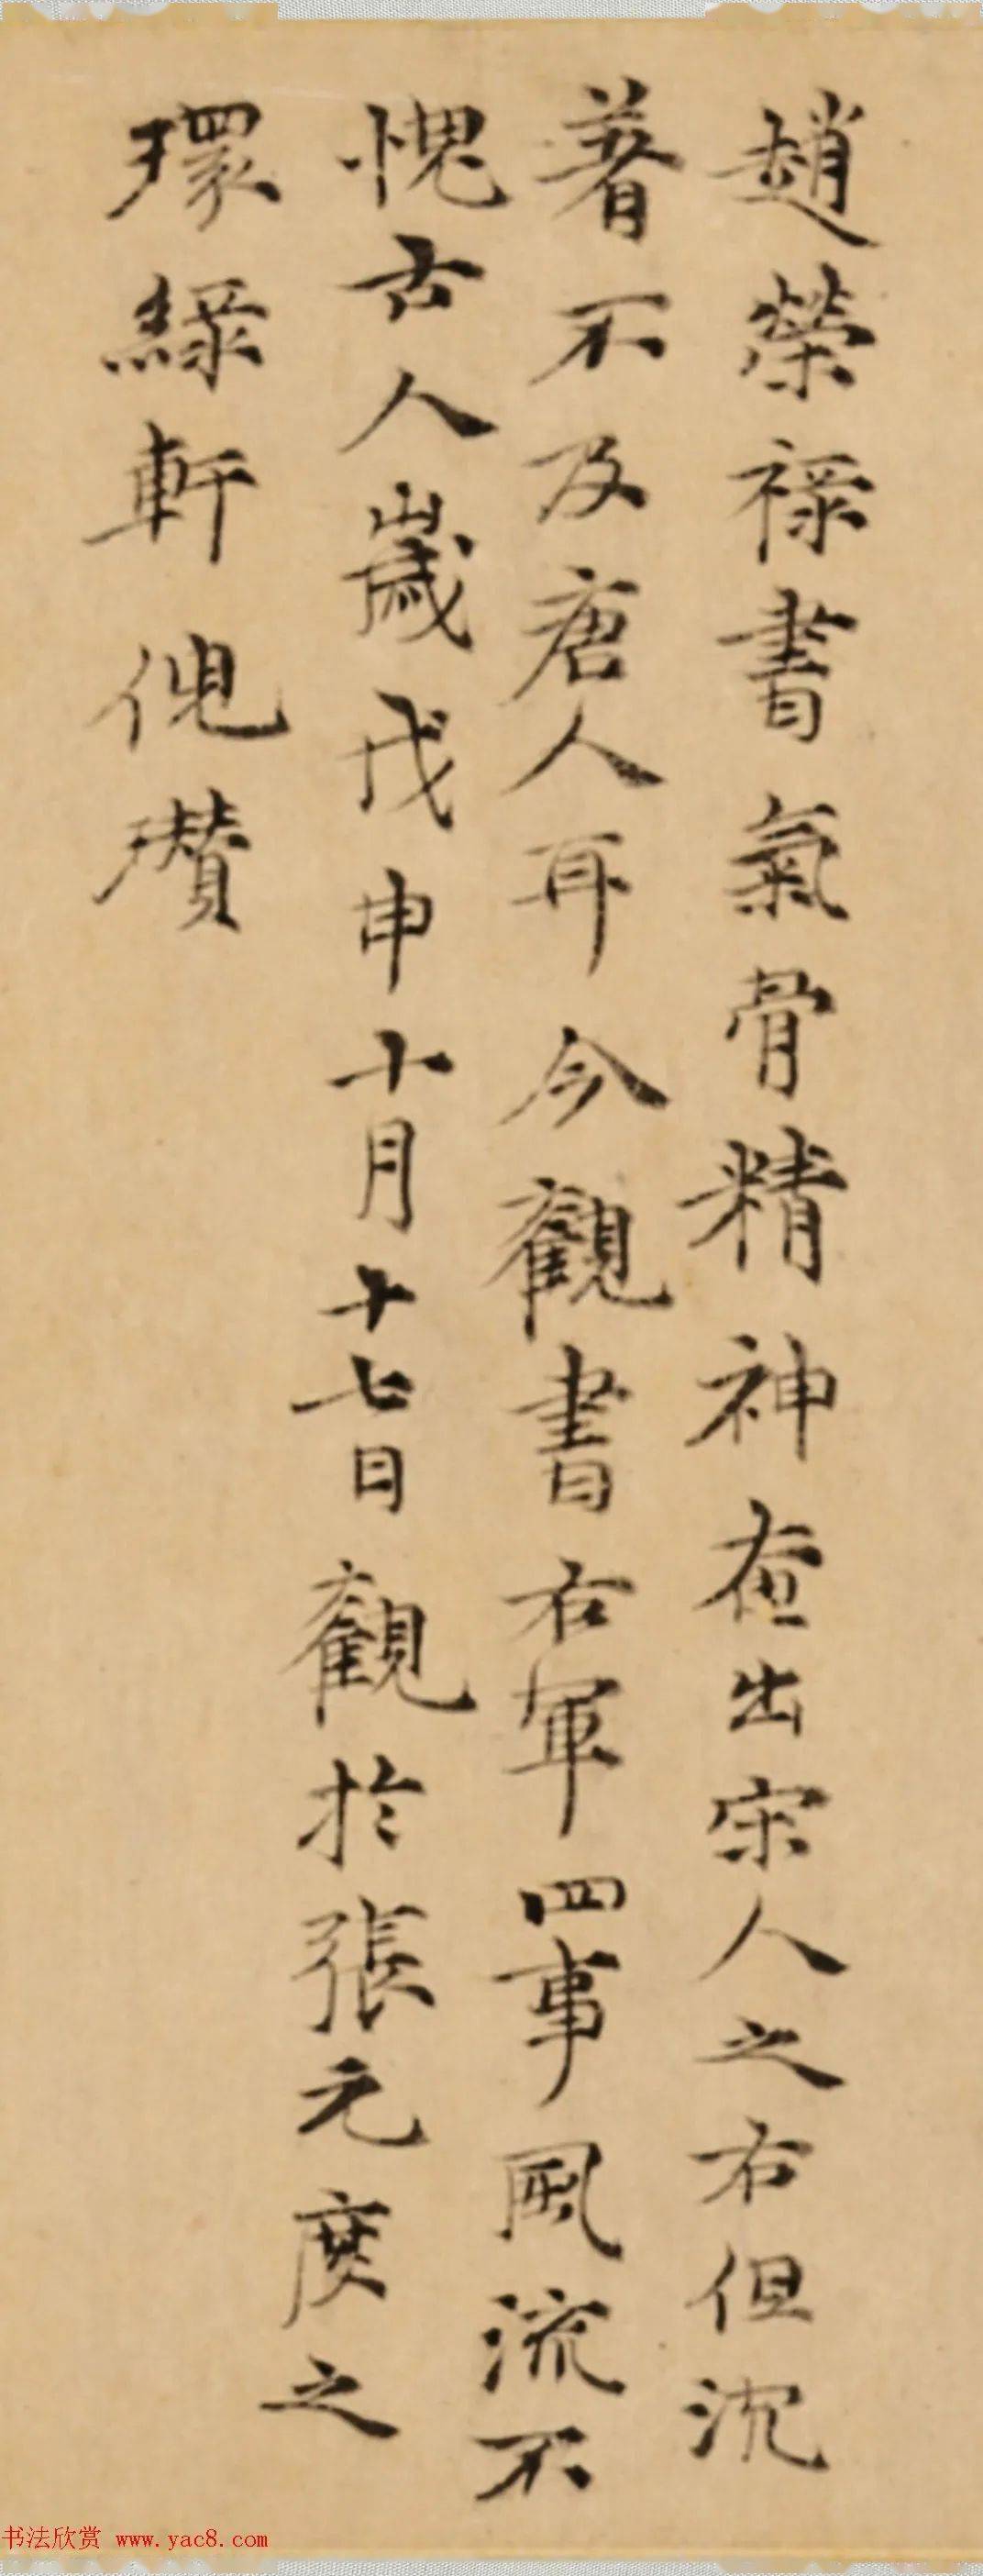 趙榮祿書氣骨精神在出宋人之右但沈
著不及唐人耳今觀書右軍四事風流不
愧古人歲戊申十月十七日觀於張元度之
環綠軒倪瓚
书法欣赏 www.yac8.com